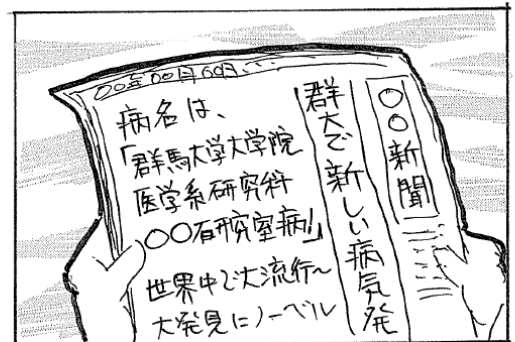 〇〇年〇〇月〇〇日
〇〇新聞
群大で新しい病気発
病名は、
「群馬大学大学院
医学系研究科
〇〇研究室病!」
世界中で大流行〜
大発見にノーベル